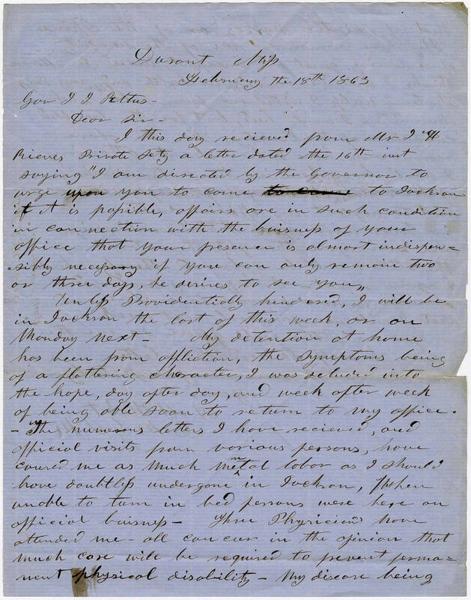 Durant Miss
February the 18th 1863
Gov J J Pettus -
Dear Sir -
I this day recieved from Mr J H
Rieves Private Sety a letter dated the 16th inst
saying "I am directed by the Governor to
urge upon you to come to come to Jackson
if it is possible, affairs are in such condition
in connection with the buisness of your
office that your presence is almost indispen-
sibly necessary if you can only remain two
or three days, he desires to see you"
Unless Providentially hindered, I will be
in Jackson the last of this week, or on
Monday next - My detention at home
has been from affliction, the symptoms being
of a flattering character, I was seduced into
the hope, day after day, and week after week
of being able soon to return to my office.
- The numerous letters I have recieved, and
official visits from various persons, have
caused me as much mental labor as I should
have doubtless undergone in Jackson, When
unable to turn in bed persons were here on
official buisness - Three Physicians have
attended me - all concur in the opinion that
much care will be required to prevent perma-
nent physical disability - My disease being